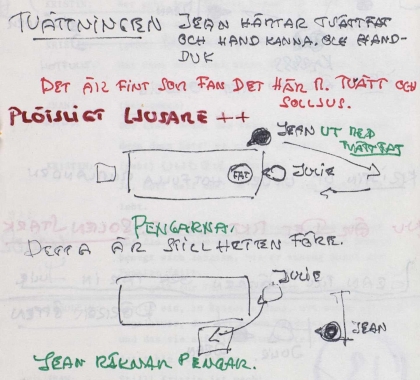 TVÄTTNINGEN JEAN HÄMTAR TVÄTTFAT
OCH HANDKANNA. OCH HAND-
DUK
DET ÄR FINT SOM FAN DET HÄR M. TVÄTT OCH
SOLLJUS.
PLÖTSLIGT LJUSARE ++
JEAN UT MED
TVÄTTFAT
FAT
JULIE
PENGARNA.
DETTA ÄR STILLHETEN FÖRE.
JULIE
JEAN
JEAN RÄKNAR PENGAR.